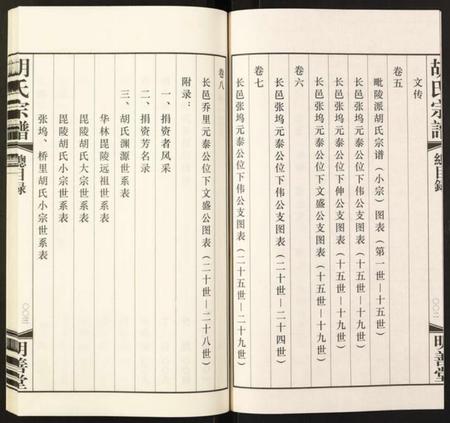 胡氏宗譜
總目錄
明善堂
文传
卷五
毗陵派胡氏宗谱（小宗）图表（第一世—十五世）
长邑张坞元泰公位下伟公支图表（十五世—十九世）
长邑张坞元泰公位下伸公支图表（十五世—十九世）
长邑张坞元泰公位下文盛公支图表（十五世—十九世）
卷六
长邑张坞元泰公位下伟公支图表（二十世—二十四世）
卷七
长邑张坞元泰公位下伟公支图表（二十五世—二十九世）
卷八
长邑乔里元泰公位下文盛公图表（二十世—二十八世）
附录：
一、捐资者风采
二、捐资芳名录
三、胡氏渊源世系表
华林毘陵远祖世系表
毘陵胡氏大宗世系表
毘陵胡氏小宗世系表
张坞、桥里胡氏小宗世系表
胡氏宗譜
總目錄
明善堂